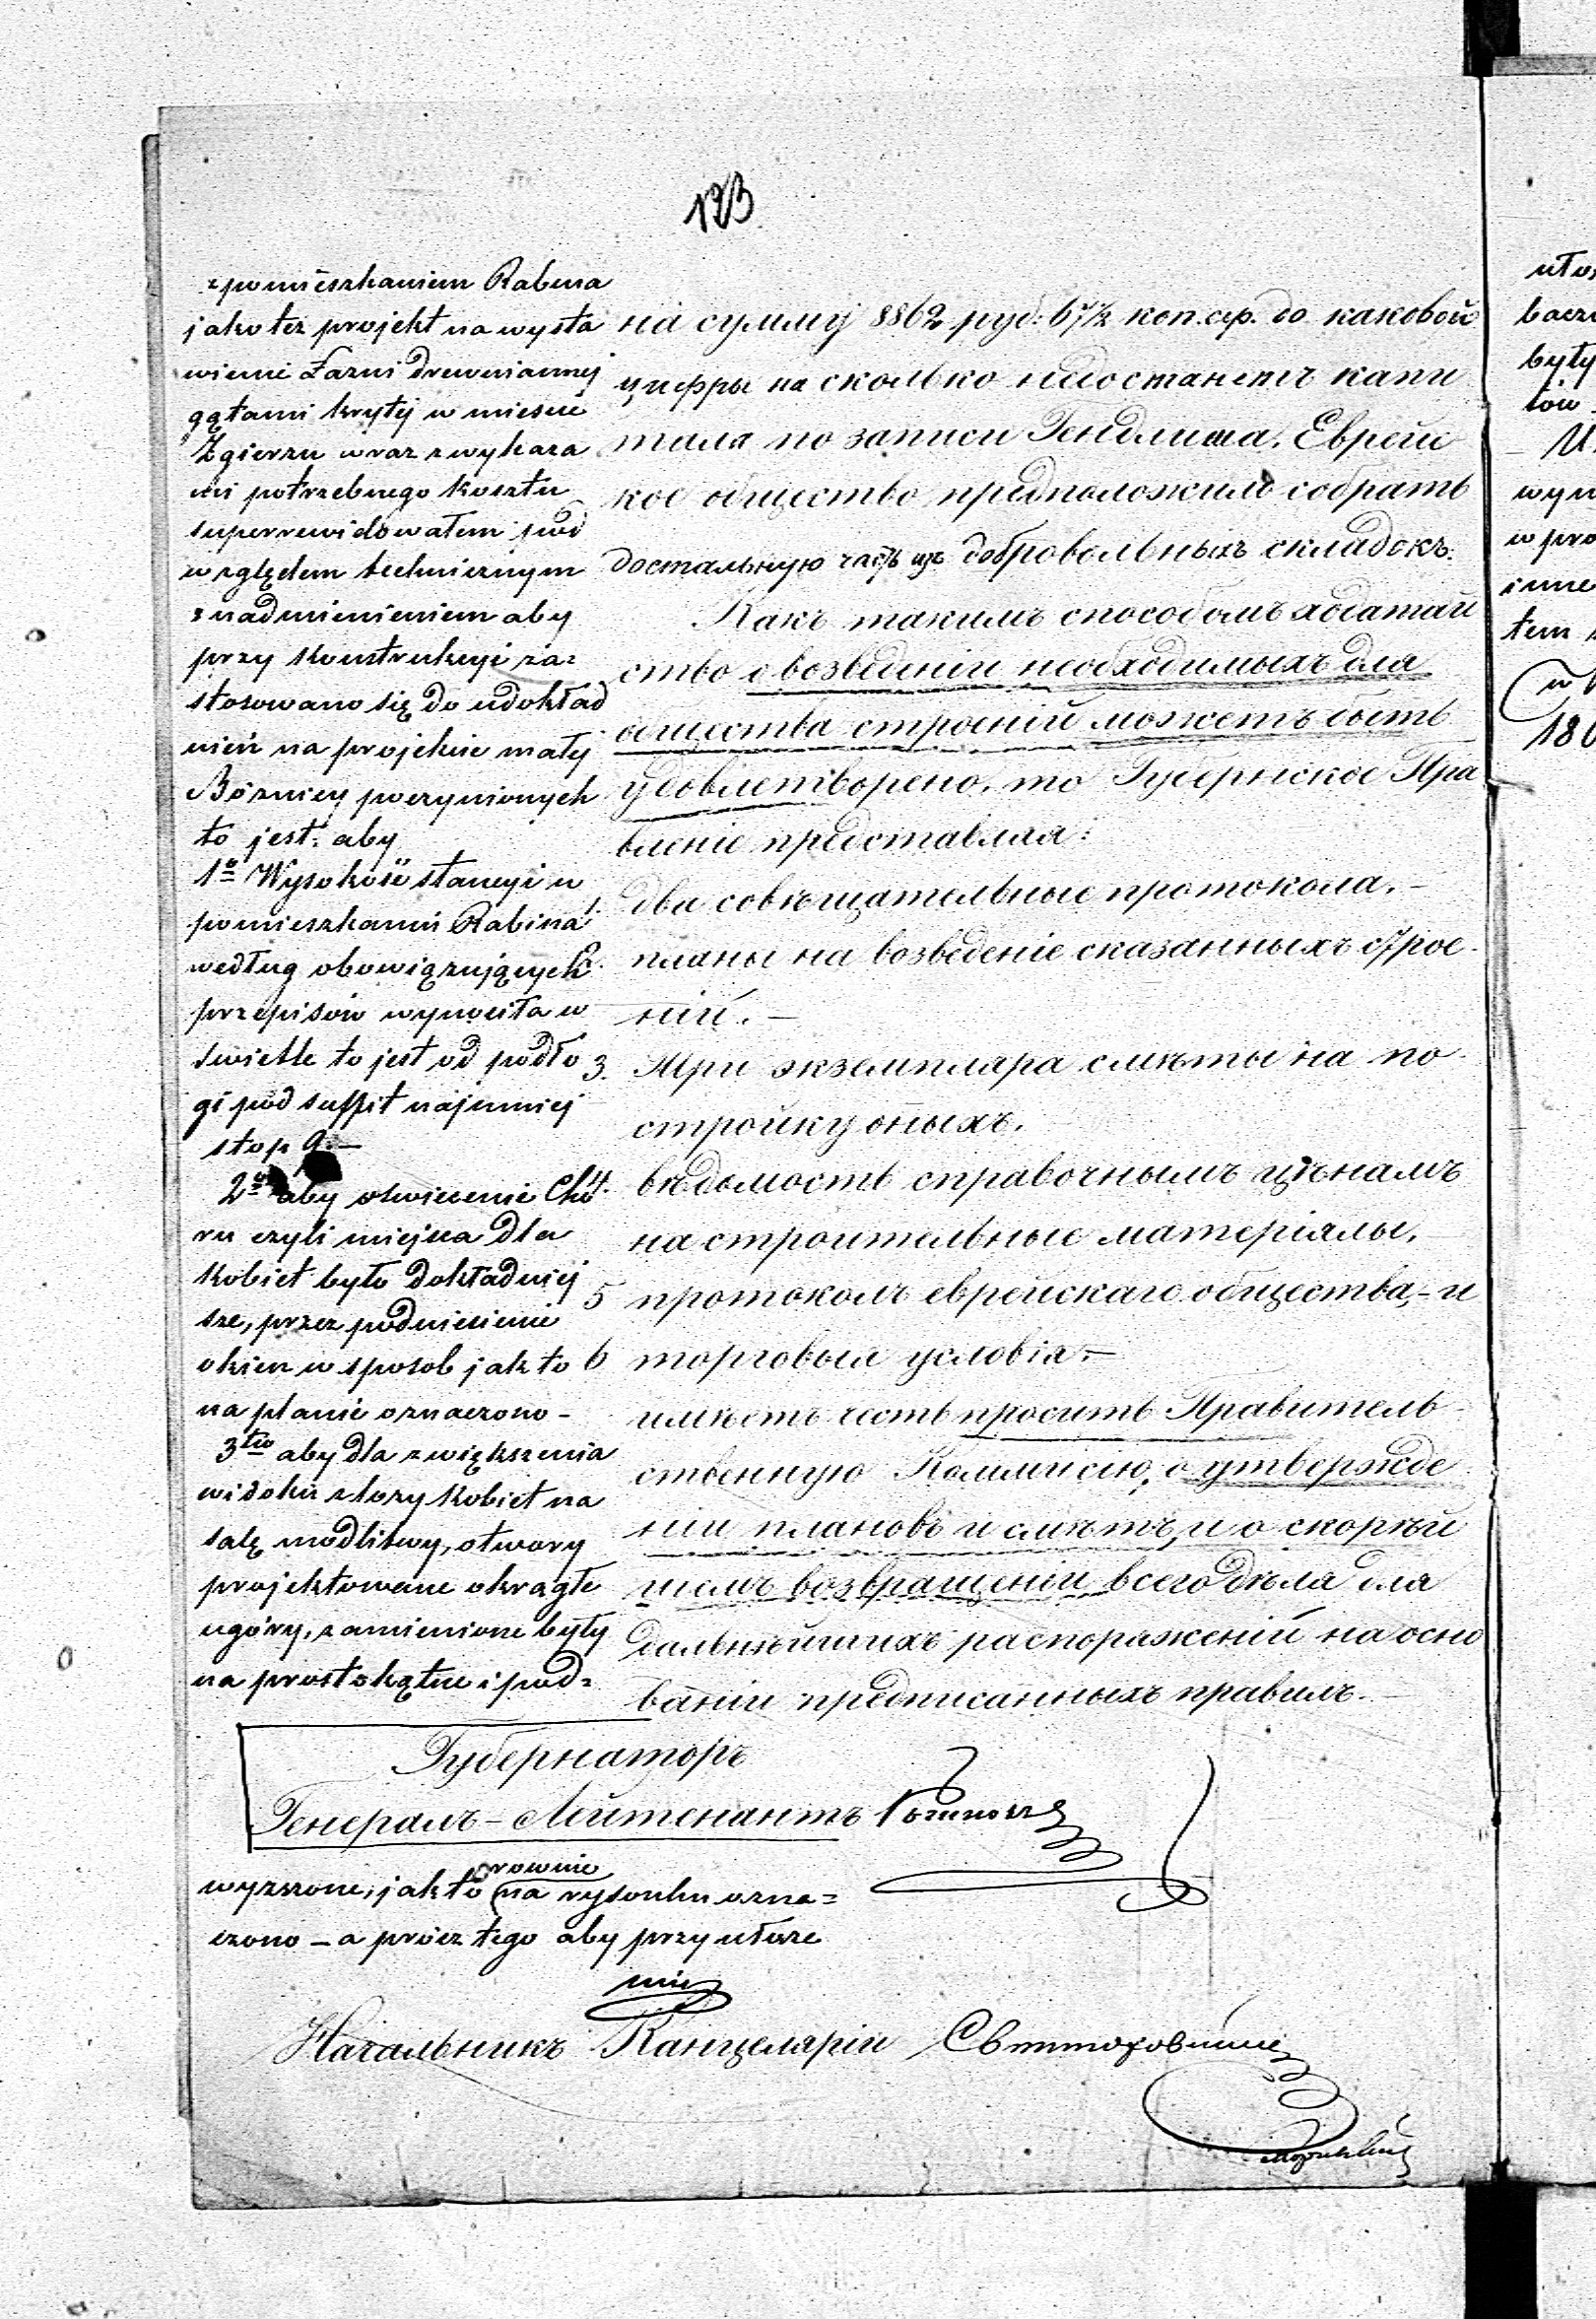 123
z pomieszkaniem Rabina
jako też projekt na wysta
wienie Łazni drewnianej
gątami krytej w mieście
Zgierzu wraz z wykaza
mi potrzebnego kosztu
superrewidowałem pod
względem technicznym
z nadmienieniem aby
przy konstrukcyi za=
stosowano się do udokład
nień na projekcie małej
Bóżnicy poczynionych
to jest: aby
1º Wysokość stancyi w
pomieszkaniu Rabina
według obowiązujących
przepisów wynosiła w
świetle to jest od podło
gi pod suffit najmniej
stop 9.—
2º aby oświecenie Chó
ru czyli miejsca dla
Kobiet było dokładniej
sze, przez podniesienie
okien w sposob jak to
na planie oznaczono -
3tio aby dla zwiększenia
widoku z loży Kobiet na
salę modlitwy, otwory
projektowane okrągłe
u góry, zamienione były
na prostokątne i pod=
на сумму 8862 руб: 67½ коп. сер. до каковой
цифры на сколько недостанетъ капи
тала по записи Гендлиша, Еврейс
кое общество предположило собрать
достальную часть изъ добровольныхъ складокъ.
Какъ такимъ способомъ ходатай
ство о возведеніи необходимыхъ для
общества строеній можетъ быть
удовлетворено, то Губернское Пра
вленіе представляя:
1. два совѣщательные протокола.—
2. планы на возведеніе сказанныхъ строе
ній.—
3. Три экземпляра смѣты на по
стройку оныхъ.
4. вѣдомость справочнымъ цѣнамъ
на строительные матеріялы,
5 протоколъ еврейскаго общества,- и
6 торговыя условія.—
имѣетъ честь просить Правитель
ственную Коммисію, о утвержде
ніи плановъ и смѣтъ, и о скорѣй
шемъ возвращеніи всего дѣла для
дальнѣйшихъ распоряженій на осно
ваніи предписанныхъ правилъ.—
Губернаторъ
Генералъ-Лейтенантъ
wyższone, jak to równie na rysunku ozna=
czono - a prócz tego aby przy ułoże
niu
Начальникъ Канцеляріи